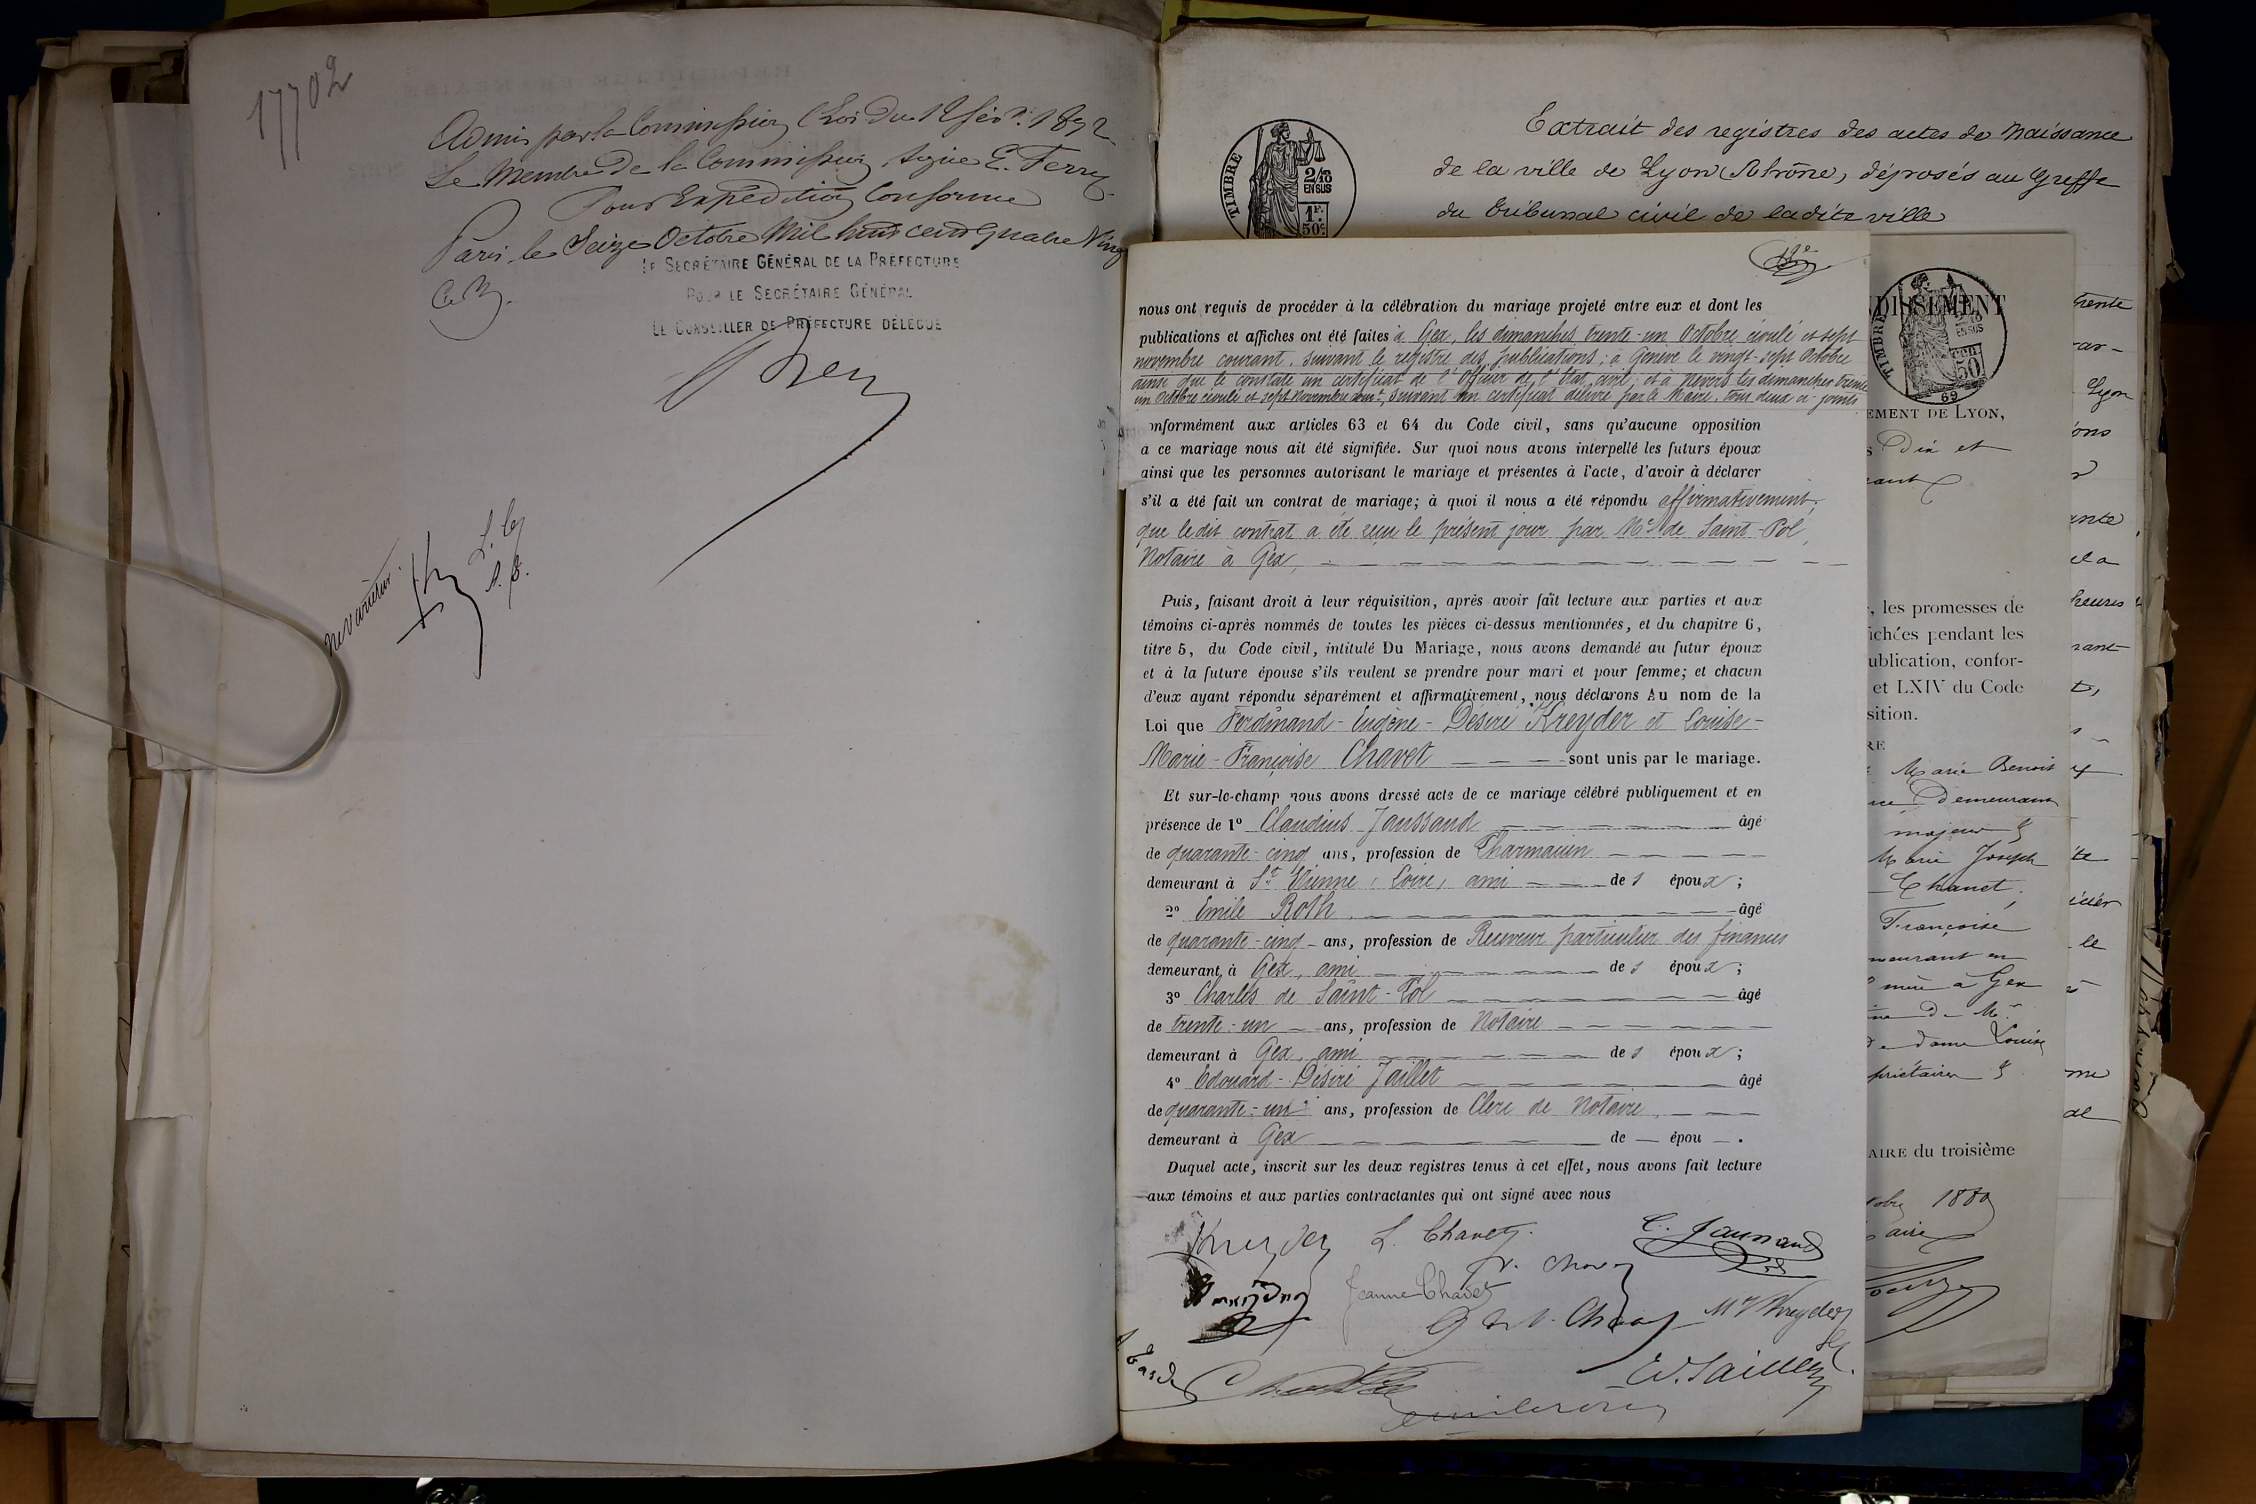 17702
Admis par la Commission (Loi du 12 févr. 1872
Le Membre de la Commission signé E. Ferry
Pour Expédition Conforme
Paris, le Seize Octobre Mil huit cent quatre Ving
LE SECRÉTAIRE GÉNÉRAL DE LA PRÉFECTURE
POUR LE SECRÉTAIRE GÉNÉRAL
LE CONSEILLER DE PRÉFECTURE DÉLÉGUÉ
Ne Varietur.
Extrait des registres des actes de Naissance
de la ville de Lyon (Rhône), déposés au Greffe
du Tribunal civil de ladite ville
TIMBRE
2/10
EN SUS
1F.
50c.
nous ont requis de procéder à la célébration du mariage projeté entre eux et dont les
publications et affiches ont été faites à Gex, les dimanches trente-un Octobre écoulé et sept
novembre courant, suivant le registre des publications; à Genève le vingt-sept Octobre
ainsi que le constate un certificat de l'Officier de l'Etat civil; et à Nevers les dimanches trente
un Octobre écoulé et sept Novembre court, suivant un certificat délivré par le Maire, tous deux ci-joints
onformément aux articles 63 et 64 du Code civil, sans qu'aucune opposition
a ce mariage nous ait été signifiée. Sur quoi nous avons interpellé les futurs époux
ainsi que les personnes autorisant le mariage et présentes à l'acte, d'avoir à déclarer
s'il a été fait un contrat de mariage; à quoi il nous a été répondu affirmativement;
que le dit contrat a été reçu le présent jour par Me de Saint-Pol,
Notaire à Gex,
Puis, faisant droit à leur réquisition, après avoir fait lecture aux parties et aux
témoins ci-après nommés de toutes les pièces ci-dessus mentionnées, et du chapitre 6,
titre 5, du Code civil, intitulé Du Mariage, nous avons demandé au futur époux
et à la future épouse s'ils veulent se prendre pour mari et pour femme; et chacun
d'eux ayant répondu séparément et affirmativement, nous déclarons Au nom de la
Loi que Ferdinand-Eugène-Désiré Kreyder et Louise-
Marie-Françoise Chavet — — — sont unis par le mariage.
Et sur-le-champ nous avons dressé acte de ce mariage célébré publiquement et en
présence de 1º Claudius Jaussaud — âgé
de quarante-cinq ans, profession de Pharmacien
demeurant à St Etienne (Loire), ami — de s époux;
2º Emile Roth, — âgé
de quarante-cinq ans, profession de Receveur particulier des finances
demeurant à Gex, ami — de s époux;
3º Charles de Saint-Pol — âgé
de trente-un ans, profession de Notaire
demeurant à Gex, ami — de s époux;
4º Edouard-Désiré Jaillet — âgé
de quarante-un ans, profession de Clerc de Notaire,
demeurant à Gex — de — épou — .
Duquel acte, inscrit sur les deux registres tenus à cet effet, nous avons fait lecture
aux témoins et aux parties contractantes qui ont signé avec nous
Kreyder L. Chavet. C. Jaussaud
Jeanne Chavet
Kreyder
Ed. Jaillet
NDISSEMENT
TIMBRE
EN SUS
CEN.
50
69
EMENT DE LYON,
Dix et
, les promesses de
ichées pendant les
ublication, confor-
et LXIV du Code
sition.
RE
Marie Benoit
Demeurant
majeur
Marie Joseph
Chavet,
Françoise
meurant en
mère à Gex
de dame Louise
priétaires
AIRE du troisième
1880
aire
trente
Lyon
heures
le